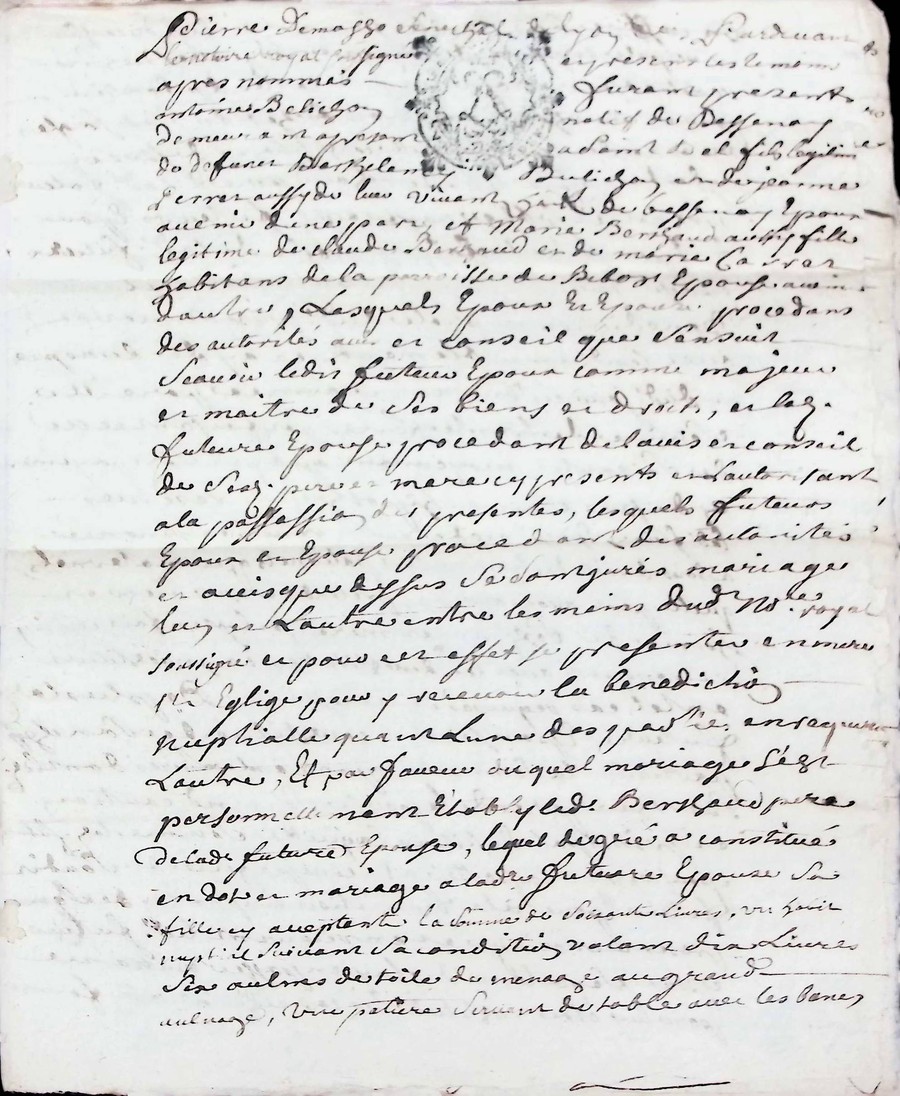 Pierre Demasso Senechal de Lyon Pardevant
le notoire royal soussigné et presens les temoins
apres nommés furent presents
antoine Belichon natif de Bessenay
demeurant apresant fils legitime
de defunct Berthelemy Belichon et de jeanne
Perret aussy de leur vivant de bessenay Epoux
avenir dune part, et Marie Berthaud aussy fille
legitime de claude Berthaud et de marie Carret
habitans de la parroisse de Bibost Epouse avenir
dautre, Lesquels Epoux Et Epouse procedans
des autorités avis et conseil que Sensuit
Scavoir ledit futeur Epoux comme majeur
et maitre de Ses biens et droits, et lad.
future Epouse procedant de lavis et conseil
de Sesd. pere et mere cy presents et Lautorisant
a la passassion des presentes, lesquels futeurs
Epoux et Epouse procedant des autorités
et avis que dessus Se sont jurés mariage
lun et Lautre entre les meins dud. No.re royal
soussigné et pour cet effet se presenter en mere
S.te Eglise pour y recevoir la benediction
nuptialle quant Lune des parties en requerra
Lautre, Et par faveur duquel mariage Sest
personnellement Etably led. Berthaud pere
de lade future Epouse, lequel de gré a constitué
en dot et mariage a lade future Epouse Sa
fille cy aceptante la somme de Soixante Livres, un habit
nuptiil Suivant Sa condition valant dix Livres
Six aulnes de toile de menage au grand
aulnage, une patiere Servant de table avec les bancs